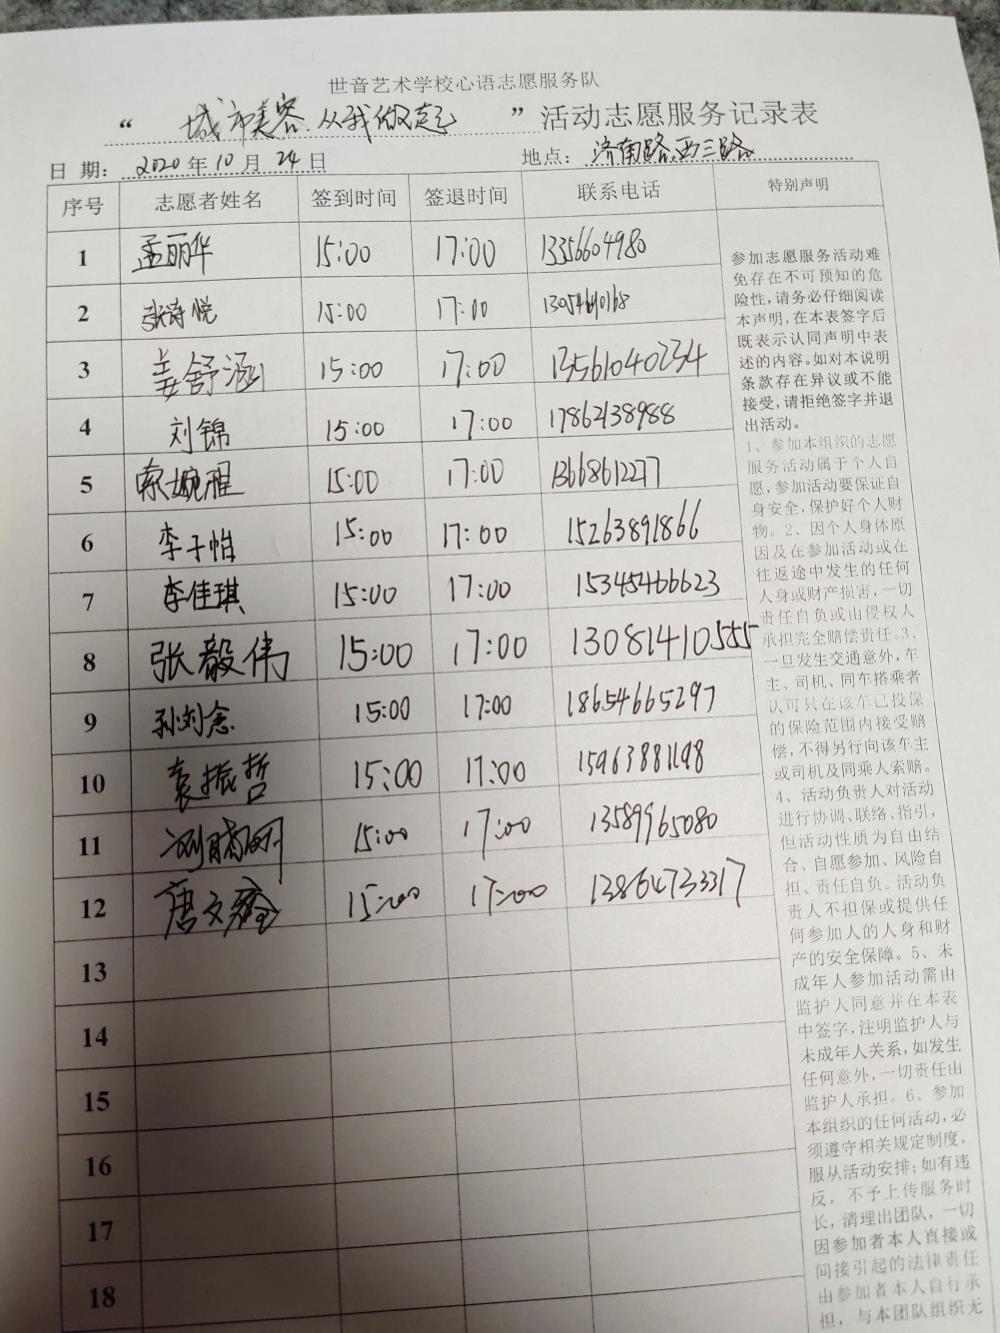 世音艺术学校心语志愿服务队
“ 城市美容 从我做起 ” 活动志愿服务记录表
日 期： 2020 年 10 月 24 日 地点： 济南路.西三路
序号 志愿者姓名 签到时间 签退时间 联系电话 特别声明
1 孟丽华 15:00 17:00 13356604980
2 张诗悦 15:00 17:00 13054690168
3 姜舒涵 15:00 17:00 13561040234
4 刘锦 15:00 17:00 17862138988
5 索婉雅 15:00 17:00 13668612277
6 李子怡 15:00 17:00 15263891866
7 李佳琪 15:00 17:00 15345466623
8 张毅伟 15:00 17:00 13081410555
9 孙刘念 15:00 17:00 18654665297
10 袁振哲 15:00 17:00 15963881198
11 15:00 17:00 13589965080
12 唐文 15:00 17:00 13864733317
13
14
15
16
17
18
参加志愿服务活动难
免存在不可预知的危
险性，请务必仔细阅读
本声明，在本表签字后
既表示认同声明中表
述的内容。如对本说明
条款存在异议或不能
接受，请拒绝签字并退
出活动。
1、参加本组织的志愿
服务活动属于个人自
愿，参加活动要保证自
身安全，保护好个人财
物。2、因个人身体原
因及在参加活动或在
往返途中发生的任何
人身或财产损害，一切
责任自负或由侵权人
承担完全赔偿责任。3、
一旦发生交通意外，车
主、司机、同车搭乘者
认可只在该车已投保
的保险范围内接受赔
偿，不得另行向该车主
或司机及同乘人索赔。
4、活动负责人对活动
进行协调、联络、指引，
但活动性质为自由结
合、自愿参加、风险自
担、责任自负。活动负
责人不担保或提供任
何参加人的人身和财
产的安全保障。5、未
成年人参加活动需由
监护人同意并在本表
中签字，注明监护人与
未成年人关系，如发生
任何意外，一切责任由
监护人承担。6、参加
本组织的任何活动，必
须遵守相关规定制度，
服从活动安排；如有违
反，不予上传服务时
长，清理出团队，一切
因参加者本人直接或
间接引起的法律责任
由参加者本人自行承
担，与本团队组织无